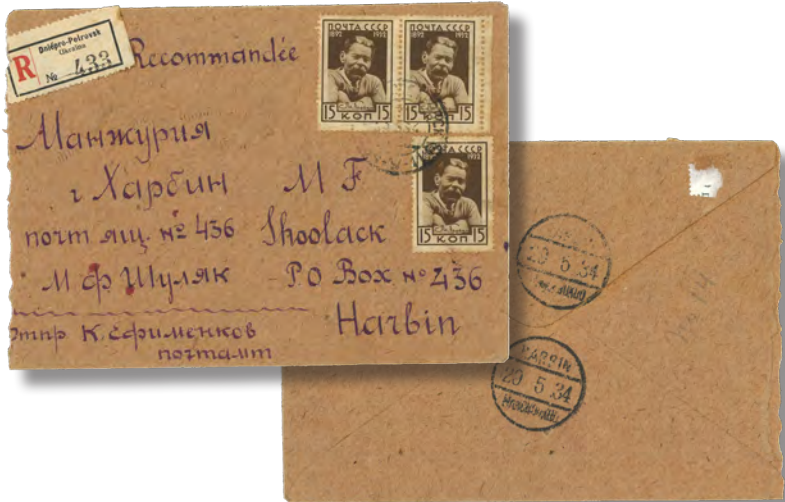 Dniépro-Petrovsk
Ukraine
R № 433
Recommandée
ПОЧТА СССР
1892 1932
15 КОП 15
ПОЧТА СССР
1892 1932
15 КОП 15
ПОЧТА СССР
1932
15 КОП 15
Манжурия
г Харбин
почт ящ. № 436
М Ф Шуляк
M F
Shoolack
P.O Box № 436
Harbin
отпр К Ефименков
почтамт
20 5 34
HARBIN
20 5 34